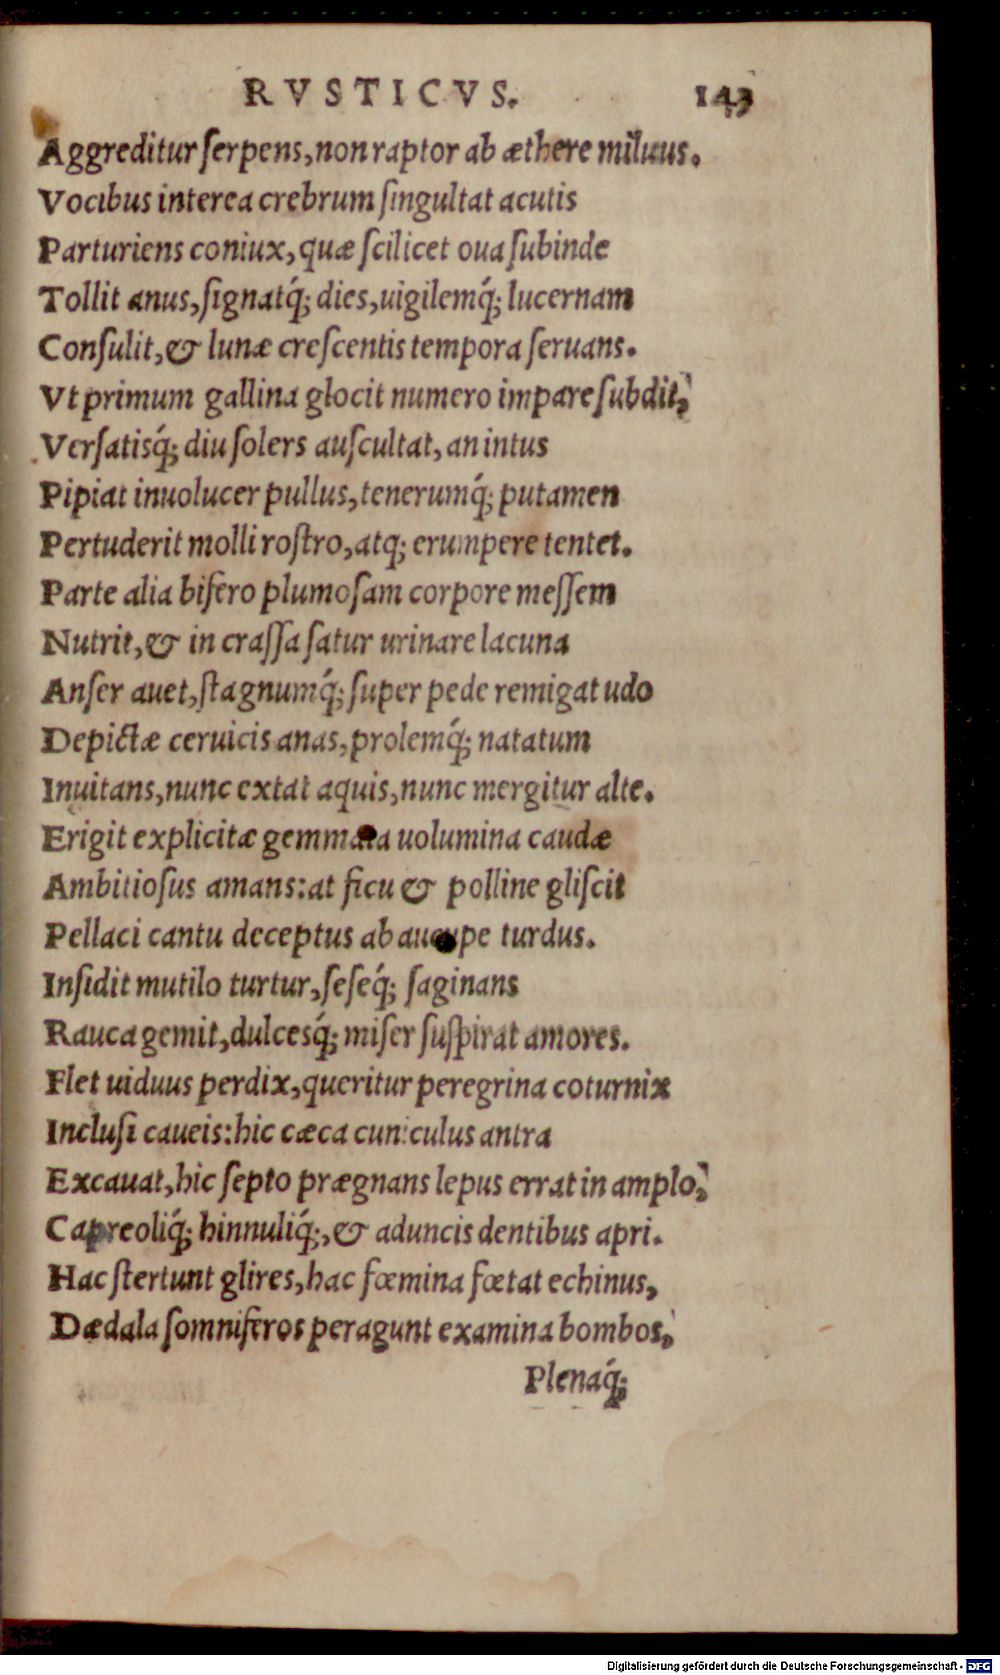 RVSTICVS. 143
Aggreditur ſerpens, non raptor ab æthere miluus.
Vocibus interea crebrum ſingultat acutis
Parturiens coniux, quæ ſcilicet oua ſubinde
Tollit anus, ſignatq́; dies, uigilemq́; lucernam
Conſulit, & lunæ creſcentis tempora ſeruans.
Vt primum gallina glocit numero impare ſubdit,
Verſatisq́; diu ſolers auſcultat, an intus
Pipiat inuolucer pullus, tenerumq́; putamen
Pertuderit molli roſtro, atq; erumpere tentet.
Parte alia bifero plumoſam corpore meſſem
Nutrit, & in craſſa ſatur urinare lacuna
Anſer auet, ſtagnumq́; ſuper pede remigat udo
Depictæ ceruicis anas, prolemq́; natatum
Inuitans, nunc extat aquis, nunc mergitur alte.
Erigit explicitæ gemmata uolumina caudæ
Ambitioſus amans: at ficu & polline gliſcit
Pellaci cantu deceptus ab aucupe turdus.
Inſidit mutilo turtur, ſeſeq́; ſaginans
Rauca gemit, dulcesq́; miſer ſuſpirat amores.
Flet uiduus perdix, queritur peregrina coturnix
Incluſi caueis: hic cæca cuniculus antra
Excauat, hic ſepto prægnans lepus errat in amplo,
Capreoliq́; hinnuliq́;, & aduncis dentibus apri.
Hac ſtertunt glires, hac fœmina fœtat echinus,
Dædala ſomniferos peragunt examina bombos,
Plenaq́;
Digitalisierung gefördert durch die Deutsche Forschungsgemeinschaft - DFG